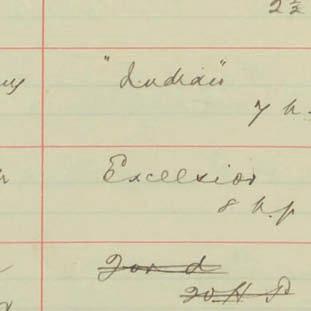 2½
"Indian"
7 h.
Excelsior
8 h.p
Ford
20 H P